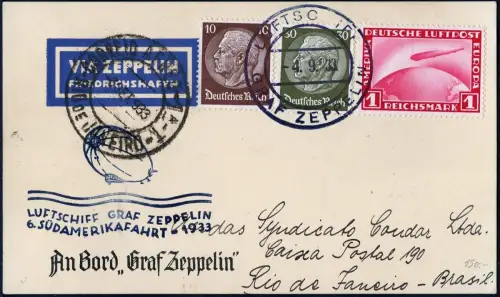 VIA ZEPPELIN
FRIEDRICHSHAFEN
10 10
Deutsches Reich
30 30
Deutsches Reich
LUFTSCHIFF
GRAF ZEPPELIN
DEUTSCHE LUFTPOST
AMERIKA
EUROPA
1 REICHSMARK 1
LUFTSCHIFF GRAF ZEPPELIN
6. SÜDAMERIKAFAHRT 1933
An Bord „Graf Zeppelin"
Syndicato Condor Ltda.
Caixa Postal 190
Rio de Janeiro - Brasil.